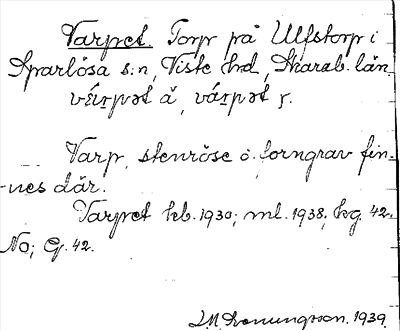 Varpet. Torp på Ulfstorp i
Sparlösa s:n, Viste hd, Skarab. län.
várpət ä, várpət y.
Varp, stenröse o. forngrav fin-
nes där.
Varpet kb. 1930; ml. 1938, kg. 42.
No; G. 42.
1939.